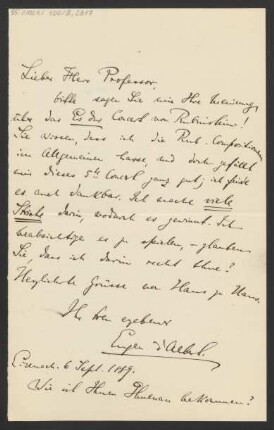 Lieber Herr Professor,
bitte sagen Sie mir Ihre Meinung
über das Es dur Concert von Rubinstein!
Sie wissen, dass ich die Rub. Compositionen
im Allgemeinen hasse, und doch gefällt
mir dieses 5te Concert ganz gut; ich finde
es auch dankbar. Ich mache viele
Striche darin, wodurch es gewinnt. Ich
beabsichtige es zu spielen, – glauben
Sie, dass ich darin recht thue?
Herzlichste Grüsse von Haus zu Haus.
Ihr treu ergebener
Eugen d'Albert.
Eisenach. 6 Sept. 1889.
Wie ist Ihnen Ilmenau bekommen?